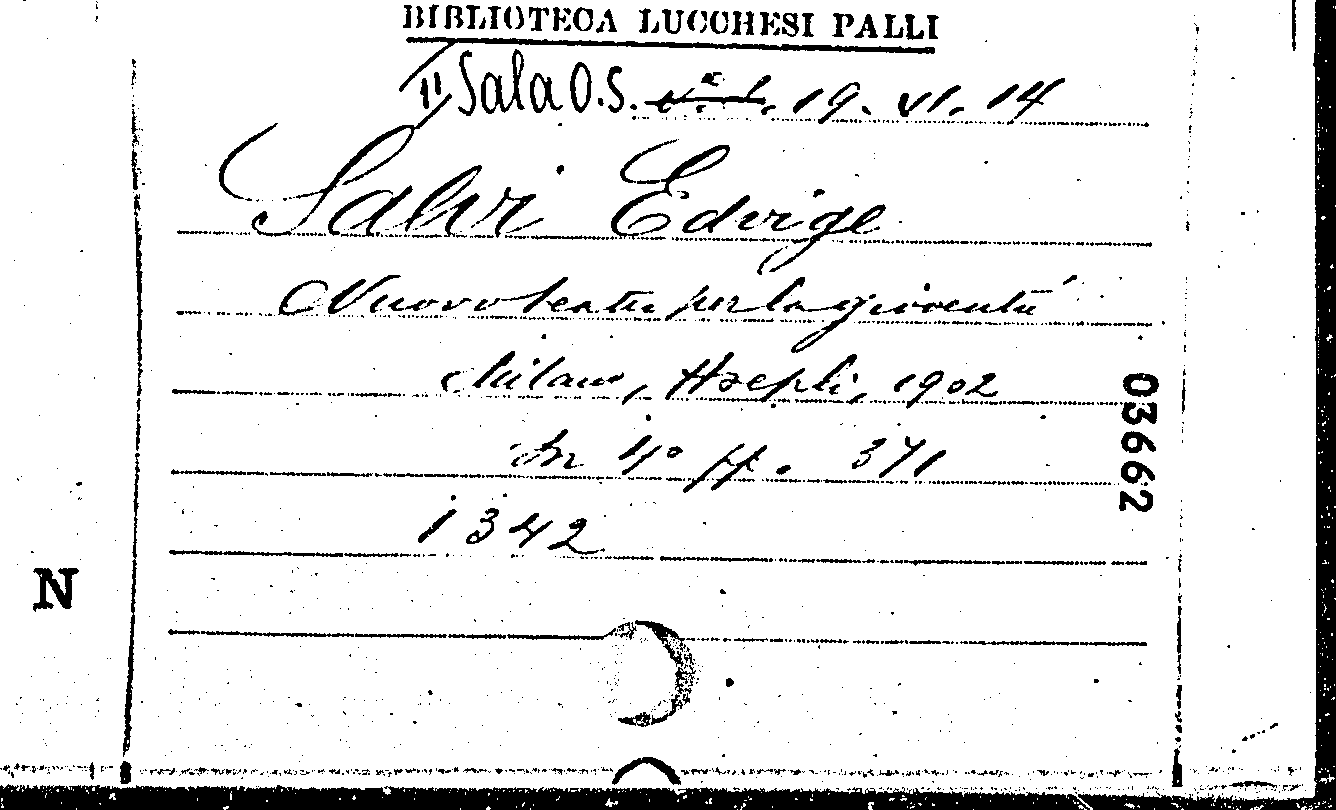 BIBLIOTECA LUCCHESI PALLI
II Sala O.S. 19. VI. 14
Salvi Edvige
Nuovo teatro per la gioventù
Milano, Hoepli, 1902
In 4° pp. 371
1342
03662
N